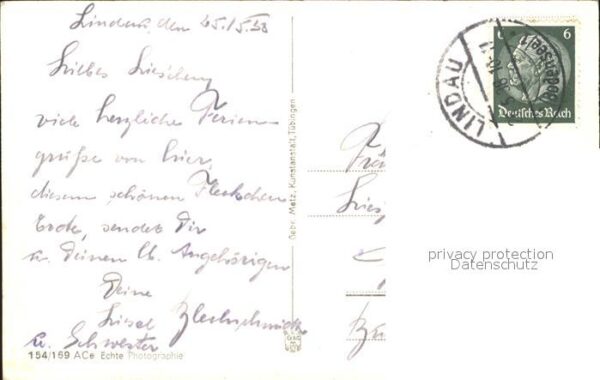 Lindau, den 25./5.38
Liebes Lieschen,
viele herzliche Ferien-
grüße von hier,
diesem schönen Fleckchen
Erde, sendet Dir
u. Deinen lb. Angehörigen
Deine
Liesel Blechschmidt
u. Schwester
154/169 ACe Echte Photographie
Gebr. Metz, Kunstanstalt, Tübingen
6 6
Deutsches Reich
LINDAU
privacy protection
Datenschutz